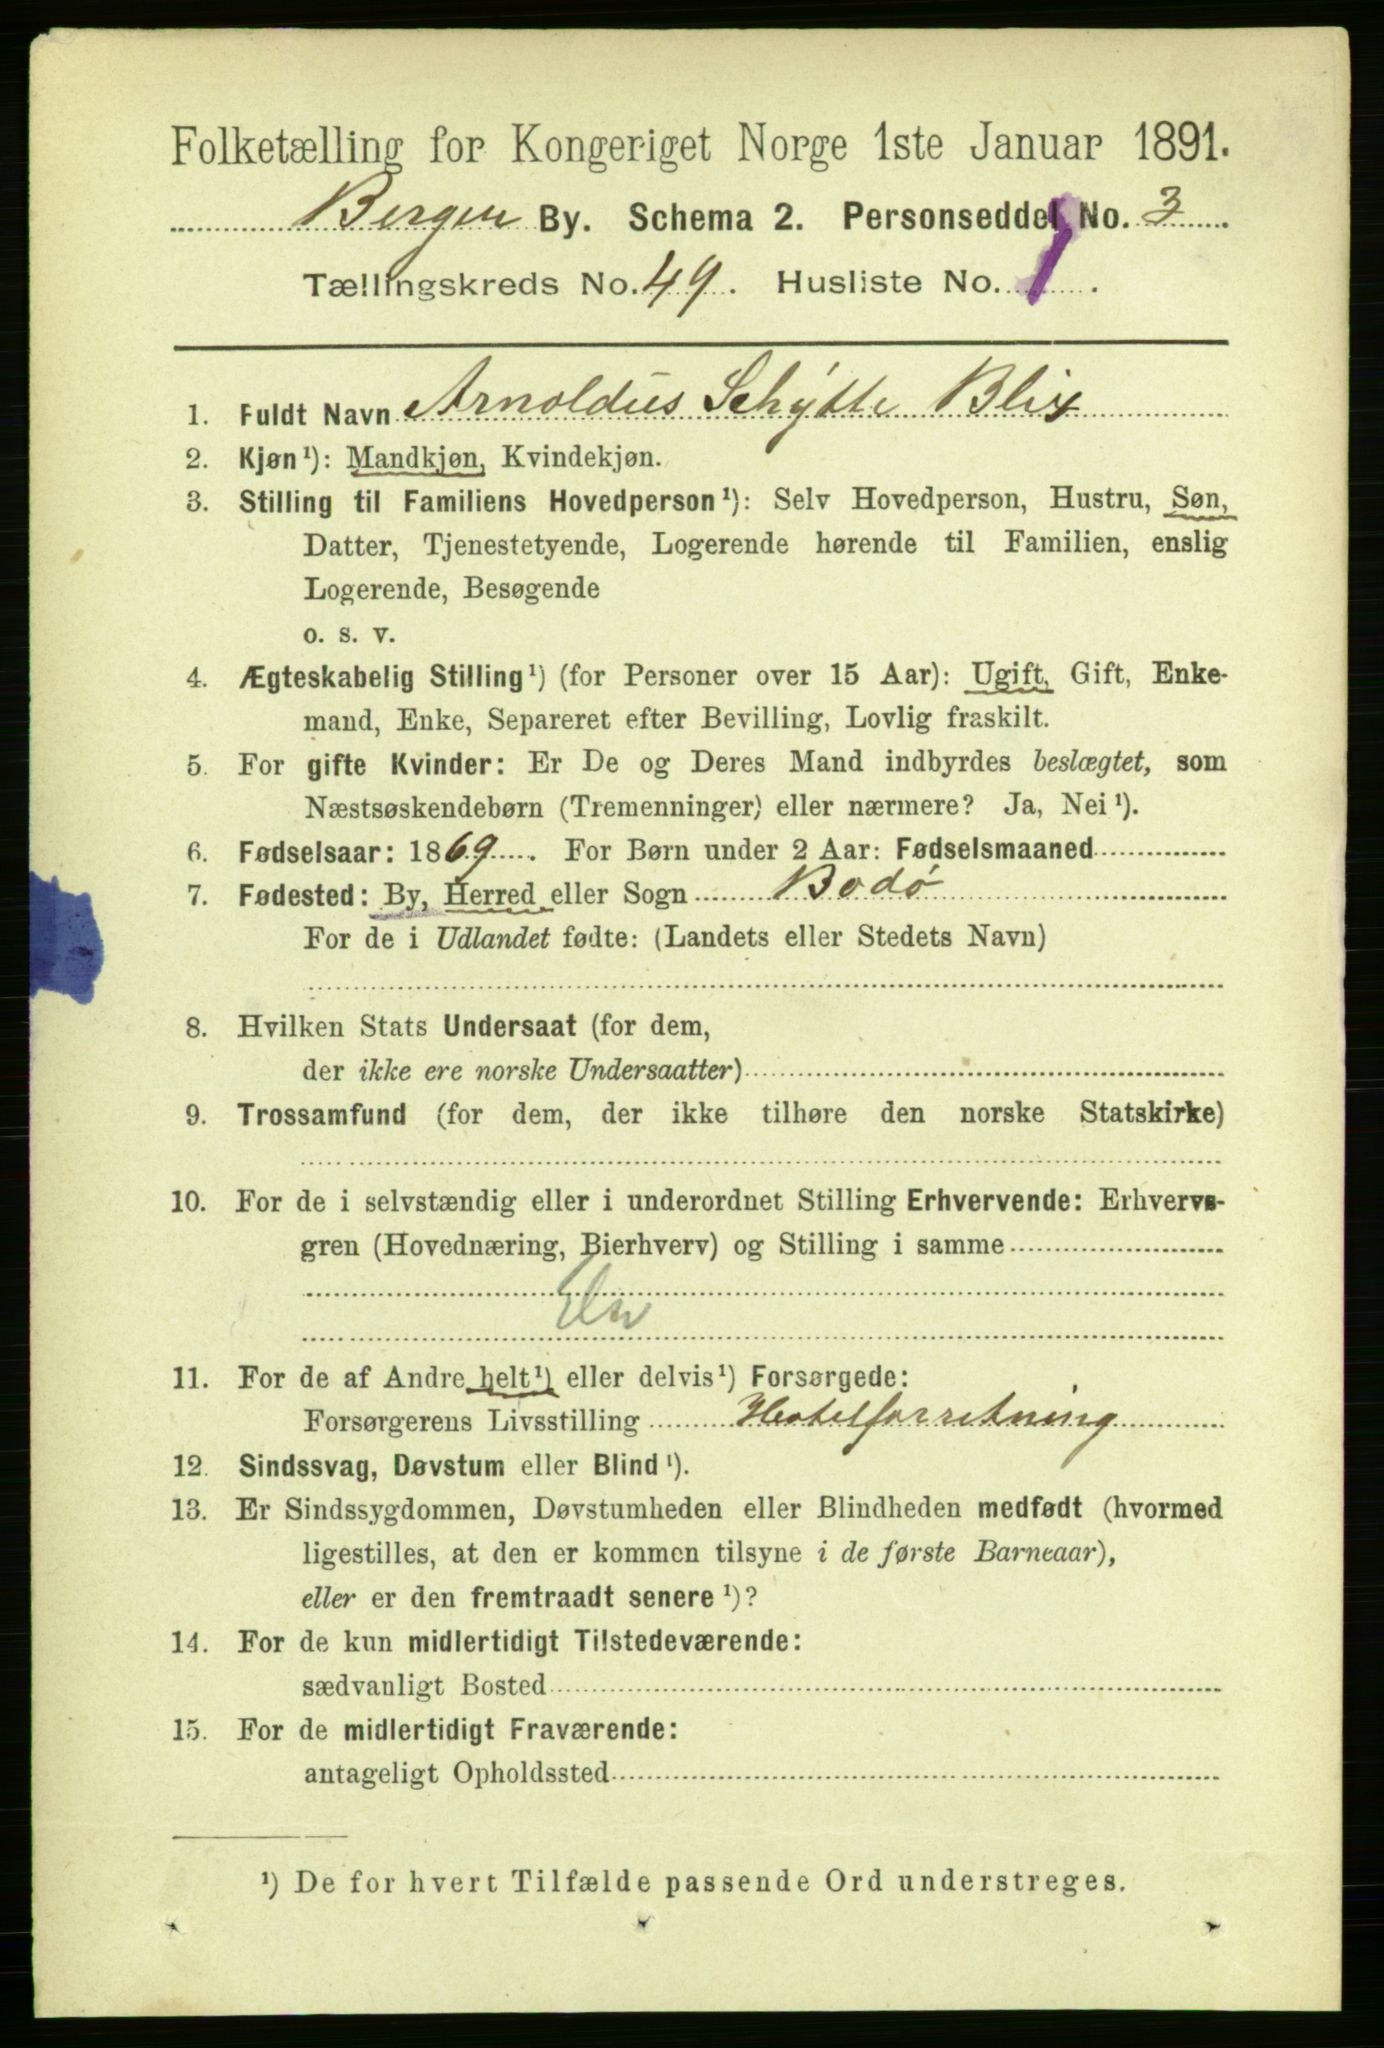 Folketælling for Kongeriget Norge 1ste Januar 1891.
Bergen By. Schema 2. Personseddel No. 3
Tællingskreds No. 49. Husliste No. 1.
1. Fuldt Navn Arnoldus Schýtte Blix
2. Kjøn¹): Mandkjøn, Kvindekjøn.
3. Stilling til Familiens Hovedperson¹): Selv Hovedperson, Hustru, Søn,
Datter, Tjenestetyende, Logerende hørende til Familien, enslig
Logerende, Besøgende
o. s. v.
4. Ægteskabelig Stilling¹) (for Personer over 15 Aar): Ugift, Gift, Enke-
mand, Enke, Separeret efter Bevilling, Lovlig fraskilt.
5. For gifte Kvinder: Er De og Deres Mand indbyrdes beslægtet, som
Næstsøskendebørn (Tremenninger) eller nærmere? Ja, Nei¹).
6. Fødselsaar: 1869. For Børn under 2 Aar: Fødselsmaaned
7. Fødested: By, Herred eller Sogn Bodø
For de i Udlandet fødte: (Landets eller Stedets Navn)
8. Hvilken Stats Undersaat (for dem,
der ikke ere norske Undersaatter)
9. Trossamfund (for dem, der ikke tilhøre den norske Statskirke)
10. For de i selvstændig eller i underordnet Stilling Erhvervende: Erhvervs-
gren (Hovednæring, Bierhverv) og Stilling i samme
11. For de af Andre helt¹) eller delvis¹) Forsørgede:
Forsørgerens Livsstilling Hotelforretning
12. Sindssvag, Døvstum eller Blind¹).
13. Er Sindssygdommen, Døvstumheden eller Blindheden medfødt (hvormed
ligestilles, at den er kommen tilsyne i de første Barneaar),
eller er den fremtraadt senere¹)?
14. For de kun midlertidigt Tilstedeværende:
sædvanligt Bosted
15. For de midlertidigt Fraværende:
antageligt Opholdssted
¹) De for hvert Tilfælde passende Ord understreges.